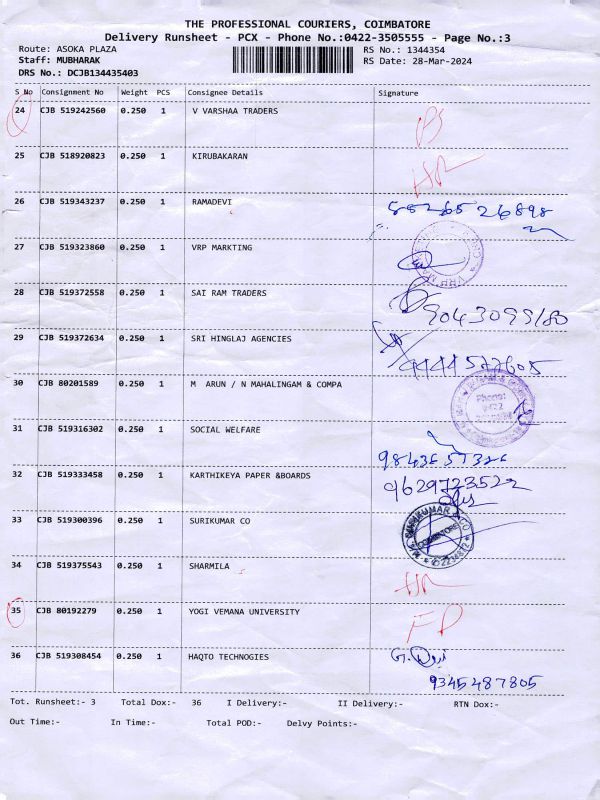 THE PROFESSIONAL COURIERS, COIMBATORE
Delivery Runsheet - PCX - Phone No.:0422-3505555 - Page No.:3
Route: ASOKA PLAZA RS No.: 1344354
Staff: MUBHARAK RS Date: 28-Mar-2024
DRS No.: DCJB134435403
S No Consignment No Weight PCS Consignee Details Signature
24 CJB 519242560 0.250 1 V VARSHAA TRADERS
25 CJB 518920823 0.250 1 KIRUBAKARAN
26 CJB 519343237 0.250 1 RAMADEVI
27 CJB 519323860 0.250 1 VRP MARKTING
28 CJB 519372558 0.250 1 SAI RAM TRADERS
29 CJB 519372634 0.250 1 SRI HINGLAJ AGENCIES
30 CJB 80201589 0.250 1 M ARUN / N MAHALINGAM & COMPA
Phone:
0422
31 CJB 519316302 0.250 1 SOCIAL WELFARE
32 CJB 519333458 0.250 1 KARTHIKEYA PAPER &BOARDS 9629723522
33 CJB 519300396 0.250 1 SURIKUMAR CO COIMBATORE
34 CJB 519375543 0.250 1 SHARMILA
35 CJB 80192279 0.250 1 YOGI VEMANA UNIVERSITY FD
36 CJB 519308454 0.250 1 HAQTO TECHNOGIES
9345487805
Tot. Runsheet:- 3 Total Dox:- 36 I Delivery:- II Delivery:- RTN Dox:-
Out Time:- In Time:- Total POD:- Delvy Points:-